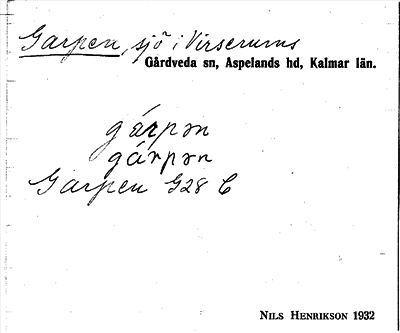 Garpen, sjö i Virserums
Gårdveda sn, Aspelands hd, Kalmar län.
gárpən
gárpən
Garpen G28 C
NILS HENRIKSON 1932